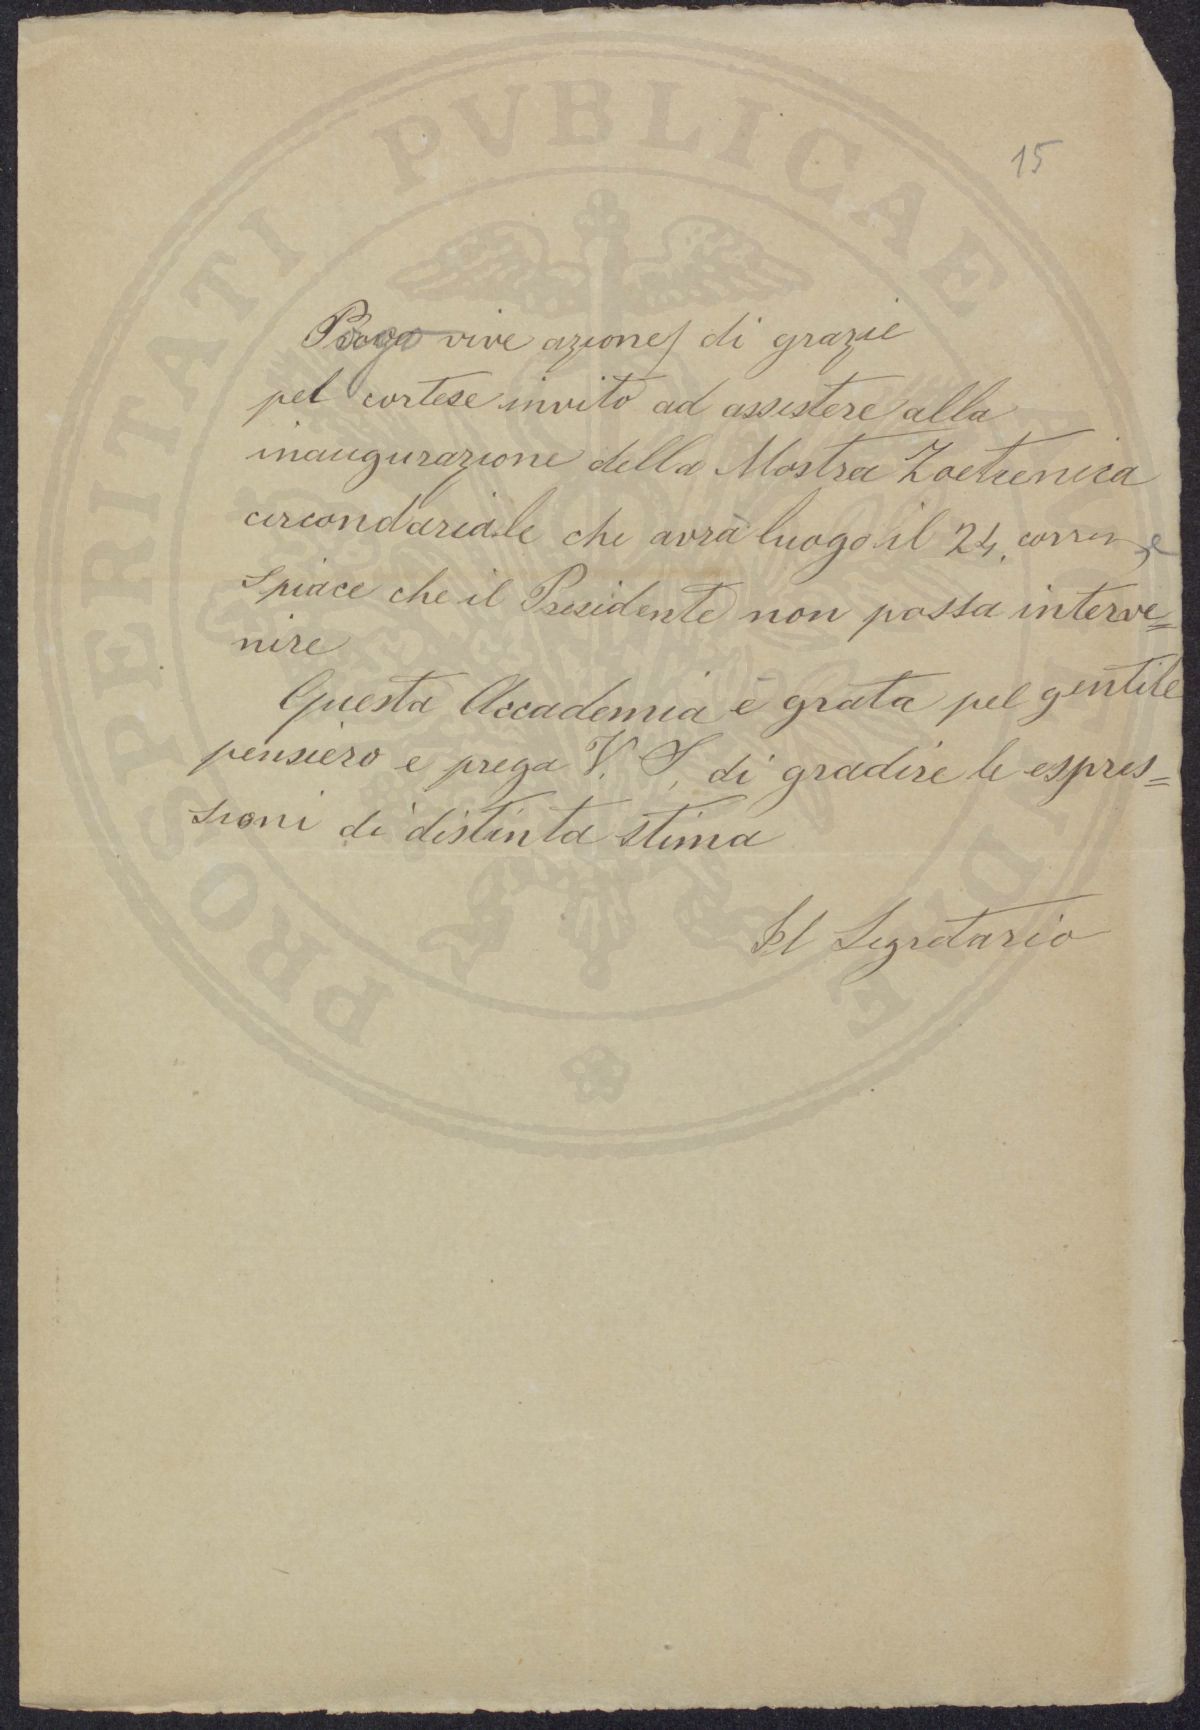 15
Porgo vive azioni di grazie
pel cortese invito ad assistere alla
inaugurazione della Mostra Zootecnica
circondariale che avrà luogo il 24. corrente
Spiace che il Presidente non possa interve=
nire
Questa Accademia è grata pel gentile
pensiero e prega V. S. di gradire le espres=
sioni di distinta stima
Il Segretario
PROSPERITATI PVBLICAE